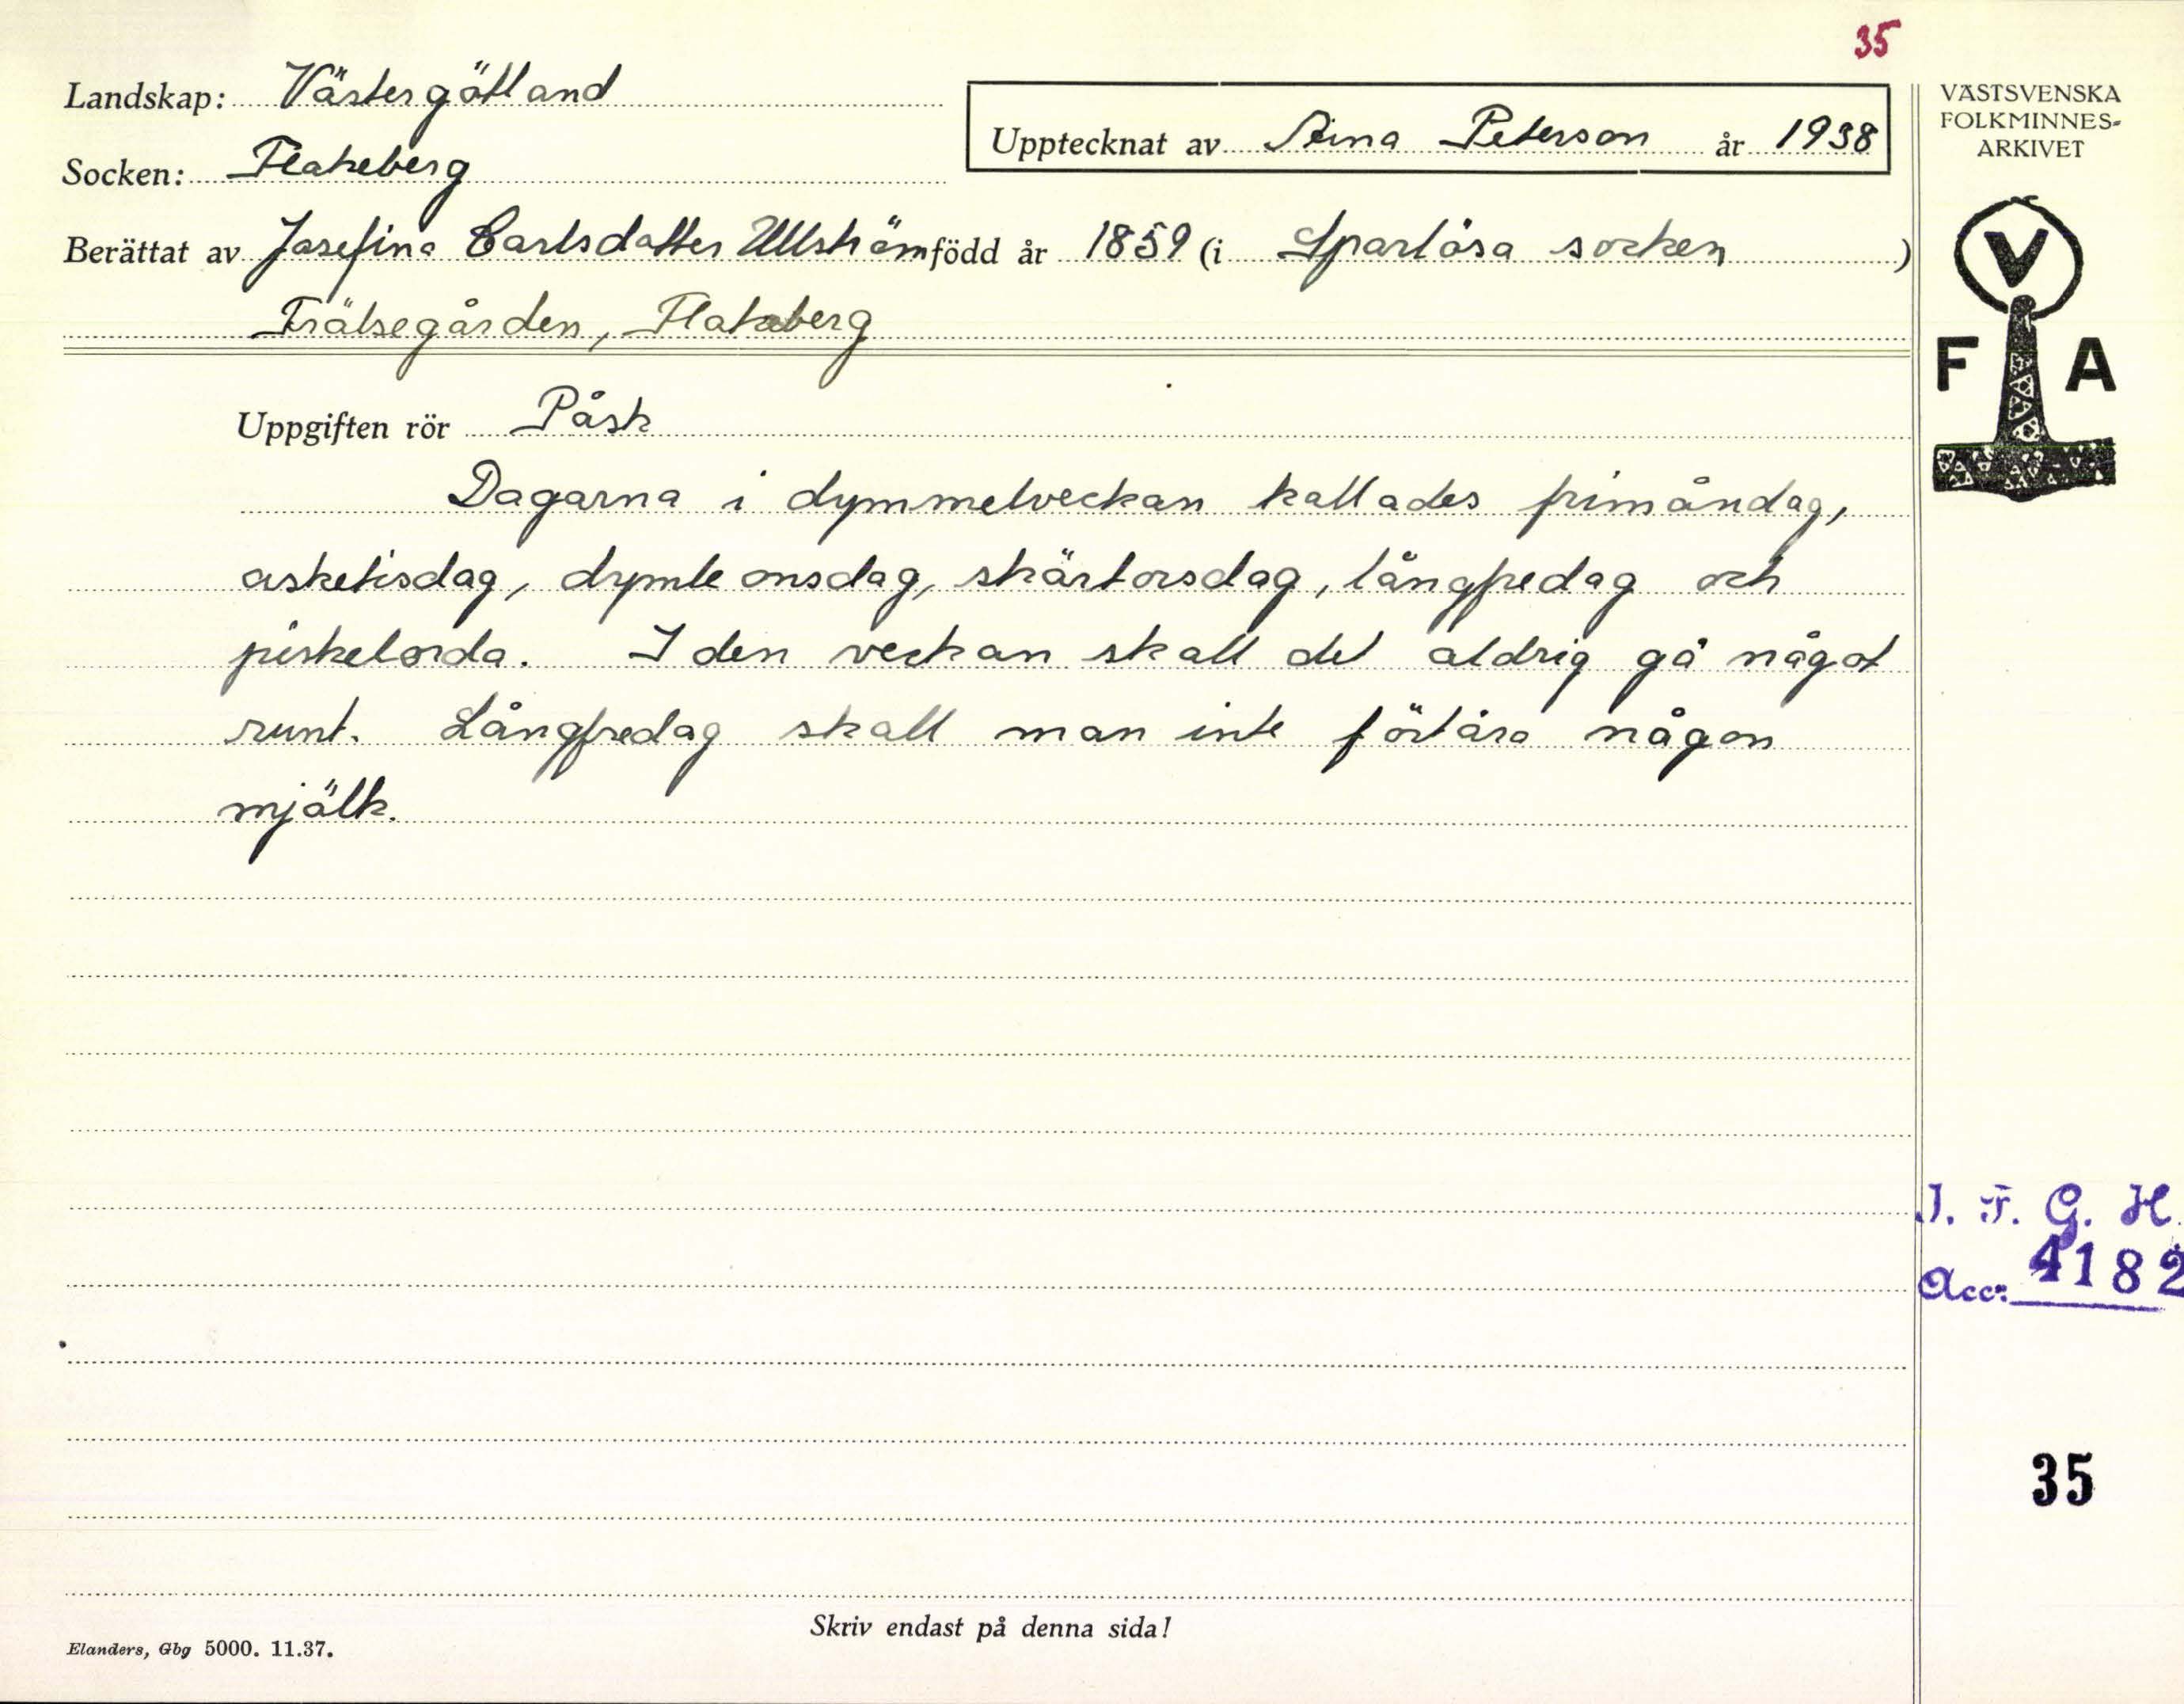 35
Landskap: Västergötland
Upptecknat av Aina Peterson år 1938
Socken: Flakeberg
Berättat av Josefina Carlsdotter Ullström född år 1859 (i Sparlösa socken)
Frälsegården, Flakeberg
Uppgiften rör Påsk
Dagarna i dymmelveckan kallades frimåndag,
asketisdag, dymleonsdag, skärtorsdag, långfredag och
piskelörda. I den veckan skall det aldrig gå något
runt. Långfredag skall man inte förtära någon
mjölk.
VÄSTSVENSKA
FOLKMINNES-
ARKIVET
V
F A
I. F. G. H.
Acc: 4182
35
Skriv endast på denna sida!
Elanders, Gbg 5000. 11.37.